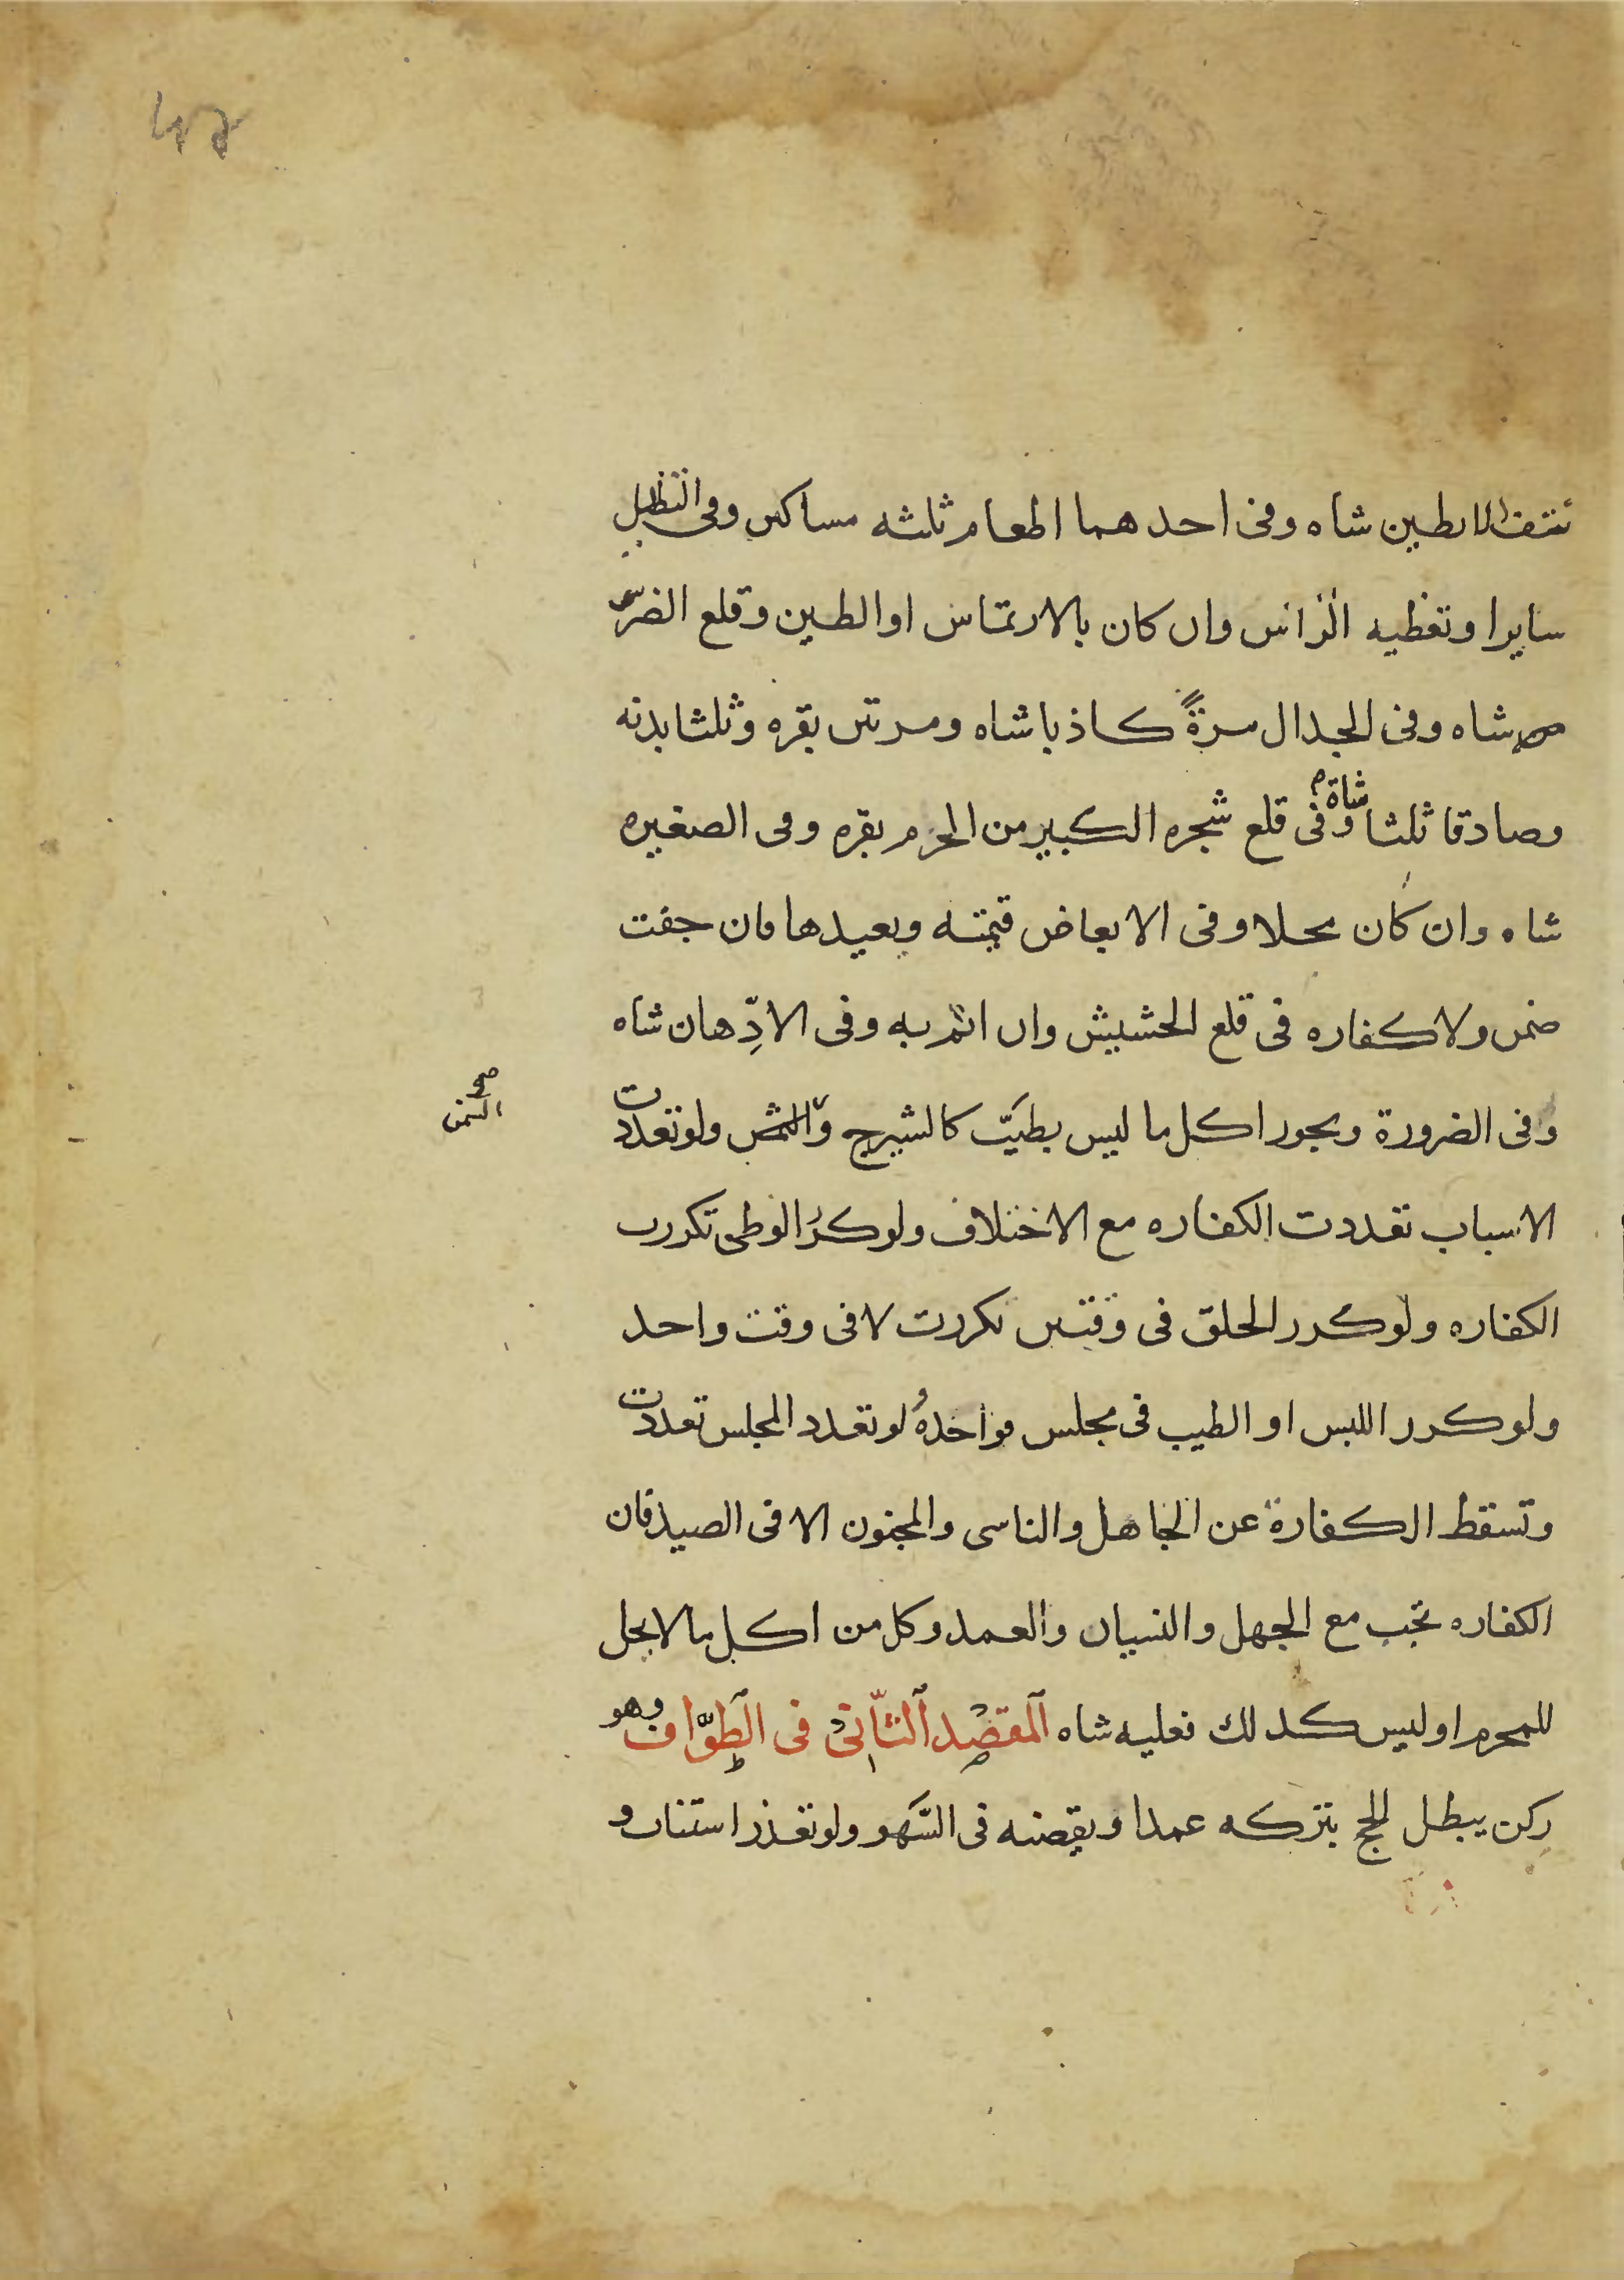 نتف الابطين شاه وفى احدهما اطعام ثلثه مساكين وفى التظليل
سايرا وتغطيه الراس وان كان بالارتماس او الطين وقلع الضرس
شاه وفى الجدال مرةً كاذبا شاه ومرتين بقره وثلثا بدنه
وصادقا ثلثا شاة وفى قلع شجره الكبير من الحرم بقره وفى الصغيره
شاه وان كان محلا وفى الابعاض قيمته ويعيدها فان جفت
ضمن ولا كفاره فى قلع الحشيش وان اثم به وفى الادِّهان شاه
وفى الضرورة ويجوز اكل ما ليس بطيَبّ كالشيرج و ولو تعددت
السمن صح
الاسباب تعددت الكفاره مع الاختلاف ولو كرر الوطى تكررت
الكفاره ولو كرر الحلق فى وقتين تكررت لا فى وقت واحد
ولو كرر اللبس او الطيب فى مجلس فواحدة ولو تعدد المجلس تعددت
وتسقط الكفارة عن الجاهل والناسى والمجنون الا فى الصيد فان
الكفاره تجب مع الجهل والنسيان والعمد وكل من اكل ما لا يحل
للمحرم او لبس كذلك فعليه شاه المقصد الثّانى فى الطوّاف وهو
ركن يبطل الحج بتركه عمدا ويقضيه فى السَّهو ولو تعذر استناب و